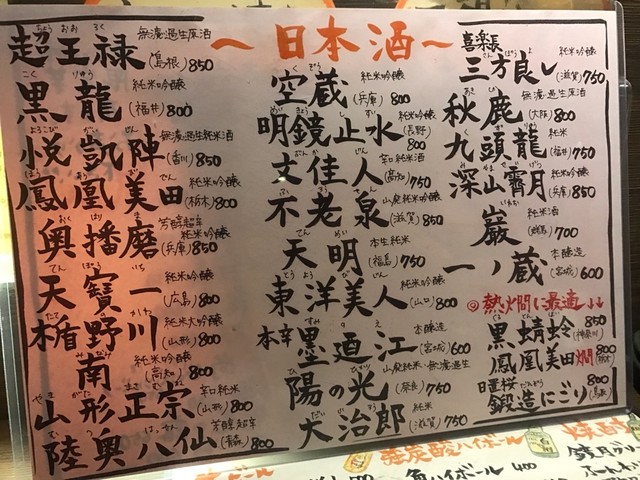 〜日本酒〜
超王禄 無濾過生原酒 (島根) 850
黒龍 純米吟醸 (福井) 800
悦凱陣 無濾過生純米酒 (香川) 850
鳳凰美田 純米吟醸 (栃木) 800
奥播磨 芳醇超辛 (兵庫) 850
天寶一 純米吟醸 (広島) 800
楯野川 純米大吟醸 (山形) 800
南 純米吟醸 (高知) 800
山形正宗 辛口純米 (山形) 800
陸奥八仙 芳醇超辛 (青森) 800
空蔵 純米吟醸 (兵庫) 800
明鏡止水 純米吟醸 (長野) 800
文佳人 辛口純米酒 (高知) 750
不老泉 山廃純米吟醸 (滋賀) 850
天明 本生純米 (福島) 750
東洋美人 純米吟醸 (山口) 800
本辛 墨廼江 本醸造 (宮城) 600
陽の光 山廃純米・無濾過生 (奈良) 750
大治郎 純米 (滋賀) 750
喜楽長
三方良し 純米吟醸 (滋賀) 750
秋鹿 無濾過生原酒 (大阪) 800
九頭龍 純米 (福井) 750
深山霽月 純米吟醸 (兵庫) 850
巖 純米酒 (群馬) 700
一ノ蔵 本醸造 (宮城) 600
◎熱燗に最適↓↓
黒蜻蛉 850 (神奈川)
鳳凰美田燗 800 (栃木)
日置桜
鍛造にごり 800 (鳥取)
強炭酸ハイボール
角ハイボール 400
焼酎